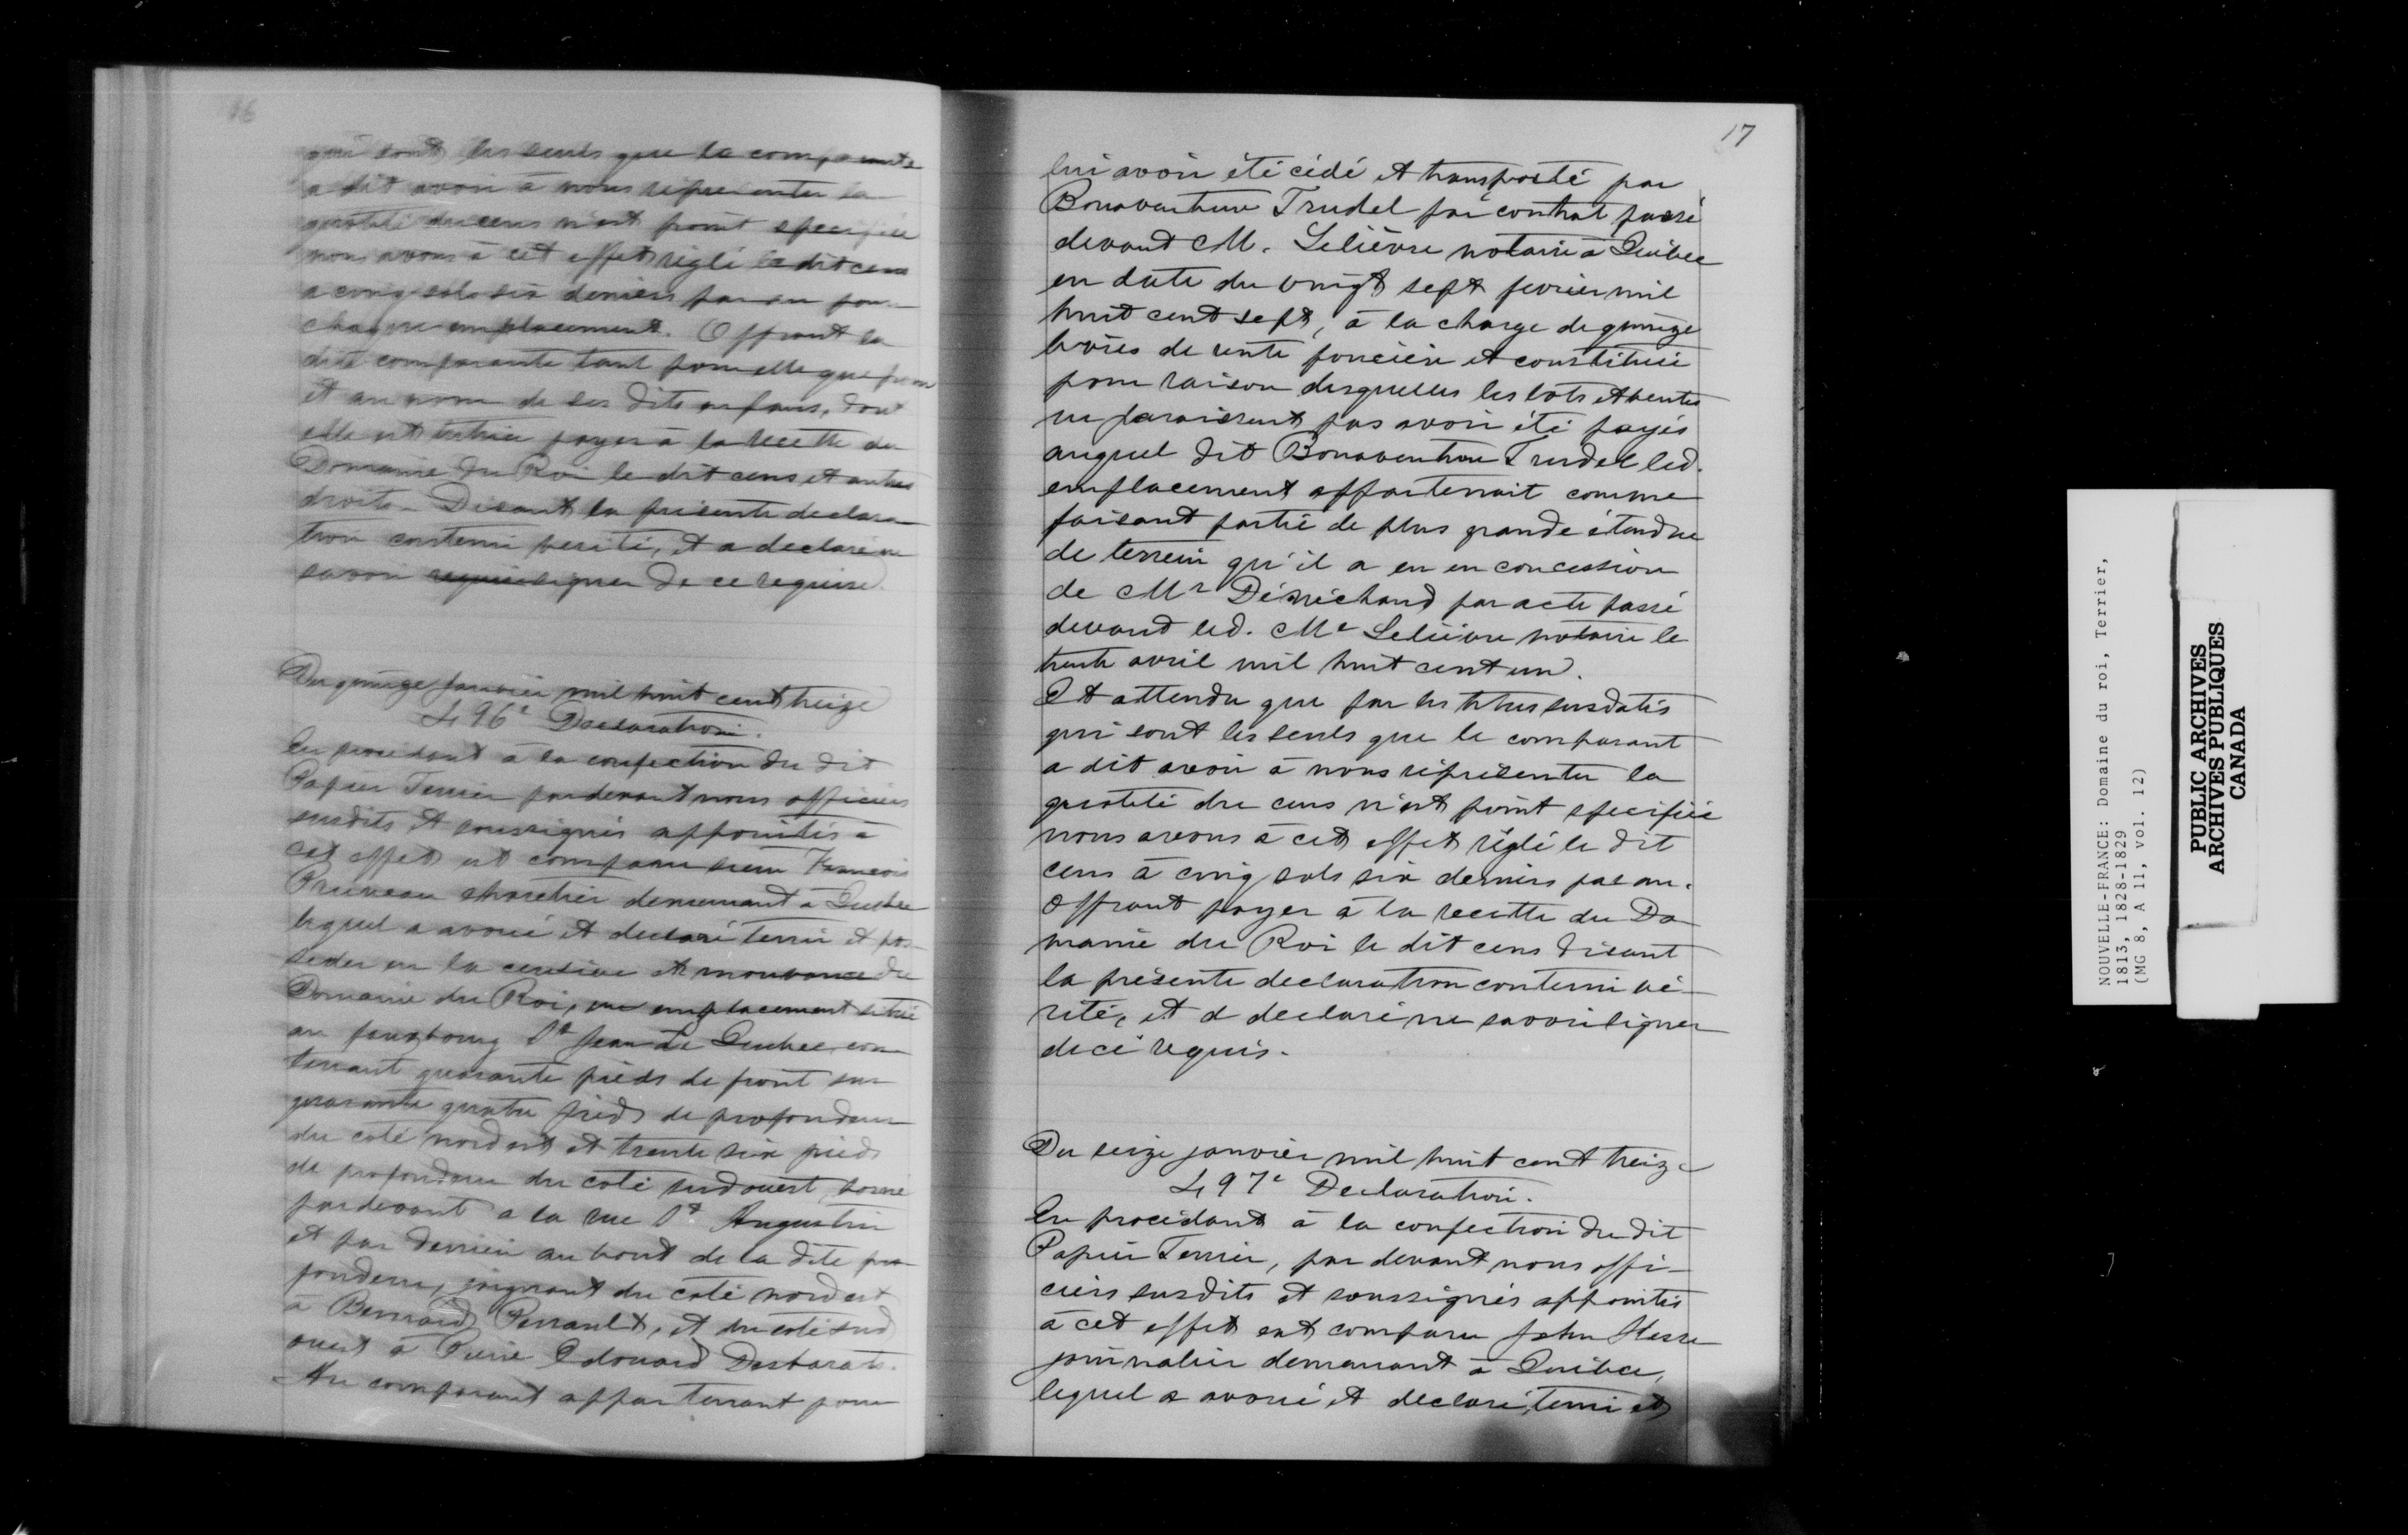 16
qui sont les seuls que la comparante
a dit avoir à nous représenter la
quotité du cens n'est point specifiée
nous avons à cet effet réglé le dit cens
a cinq sols six deniers par an pour
chaque emplacement. Offrant la
dite comparante tant pour elle que pour
et au nom de ses dits enfans, dont
elle est tutrice payer à la recette du
Domaine du Roi le dit cens et autres
droits - Disant la présente declara-
tion contenir verité, et a declaré ne
savoir signer de ce requise.
Du quinze Janvier mil huit cent treize
496e Declaration.
En procedant à la confection du dit
Papier Terrier pardevant nous officiers
susdits et soussignés appointés à
cet effet est comparu sieur François
demeurant à Quebec
lequel a avoué et declaré tenir et pos-
seder en la censive et mouvance du
Domaine du Roi, un emplacement situé
au fauxbourg St Jean de Quebec con-
tenant quarante pieds de front sur
quarante quatre pieds de profondeur
du coté nord est et trente six pieds
de profondeur du coté sud ouest, borné
pardevant a la rue St Augustin
et par derriere au bout de la dite pro-
fondeur, joignant du coté nord est
à Bernard Perrault, et du coté sud
ouest à Pierre Edouard Desbarats.
Au comparant appartenant pour
17
lui avoir été cédé et transporté par
Bonaventure Trudel par contrat passé
devant M. Lelièvre notaire à Quebec
en date du vingt sept fevrier mil
huit cent sept, à la charge de quinze
livres de rente foncière et constituée
pour raison desquelles les lots et ventes
ne paroissent pas avoir été payés
auquel dit Bonaventure Trudel led.
emplacement appartenait comme
faisant partie de plus grande étendue
de terrein qu'il a eu en concession
de Mr Déséchaud par acte passé
devand led. Me Lelièvre notaire le
trente avril mil huit cent un.
Et attendu que par les titres susdatés
qui sont les seuls que le comparant
a dit avoir à nous réprésenter la
quotité du cens n'est point specifiée
nous avons à cet effet réglé le dit
cens à cinq sols six deniers par an.
Offrant payer à la recette du Do
maine du Roi le dit cens disant
la présente declaration contenir vé-
rité, et a declaré ne savoir signer
de ce requis.
Du seize janvier mil huit cent treize
497e Declaration.
En procédant à la confection du dit
Papier Terrier, par devant nous offi-
ciers susdits et soussignés appointés
à cet effet est comparu John Hesse
journalier demeurant à Quibec,
lequel a avoué et declaré, tenir et
NOUVELLE-FRANCE: Domaine du roi, Terrier,
1813, 1828-1829
(MG 8, A 11, vol. 12)
PUBLIC ARCHIVES
ARCHIVES PUBLIQUES
CANADA